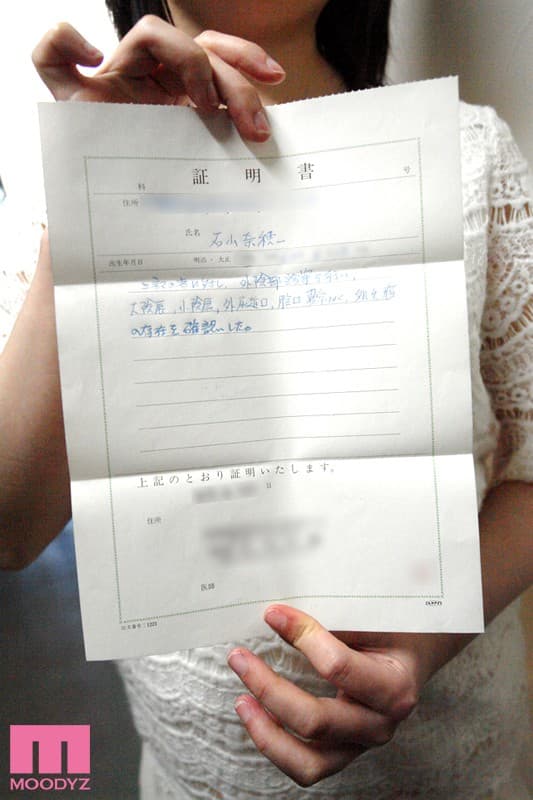 証明書
科
号
住所
氏名 石山奈穂
出生年月日 明治・大正
外陰部診察を行い、
大陰唇、小陰唇、外尿道口、腟口 処女膜
の存在を確認した。
上記のとおり証明いたします。
日
住所
医師
MOODYZ